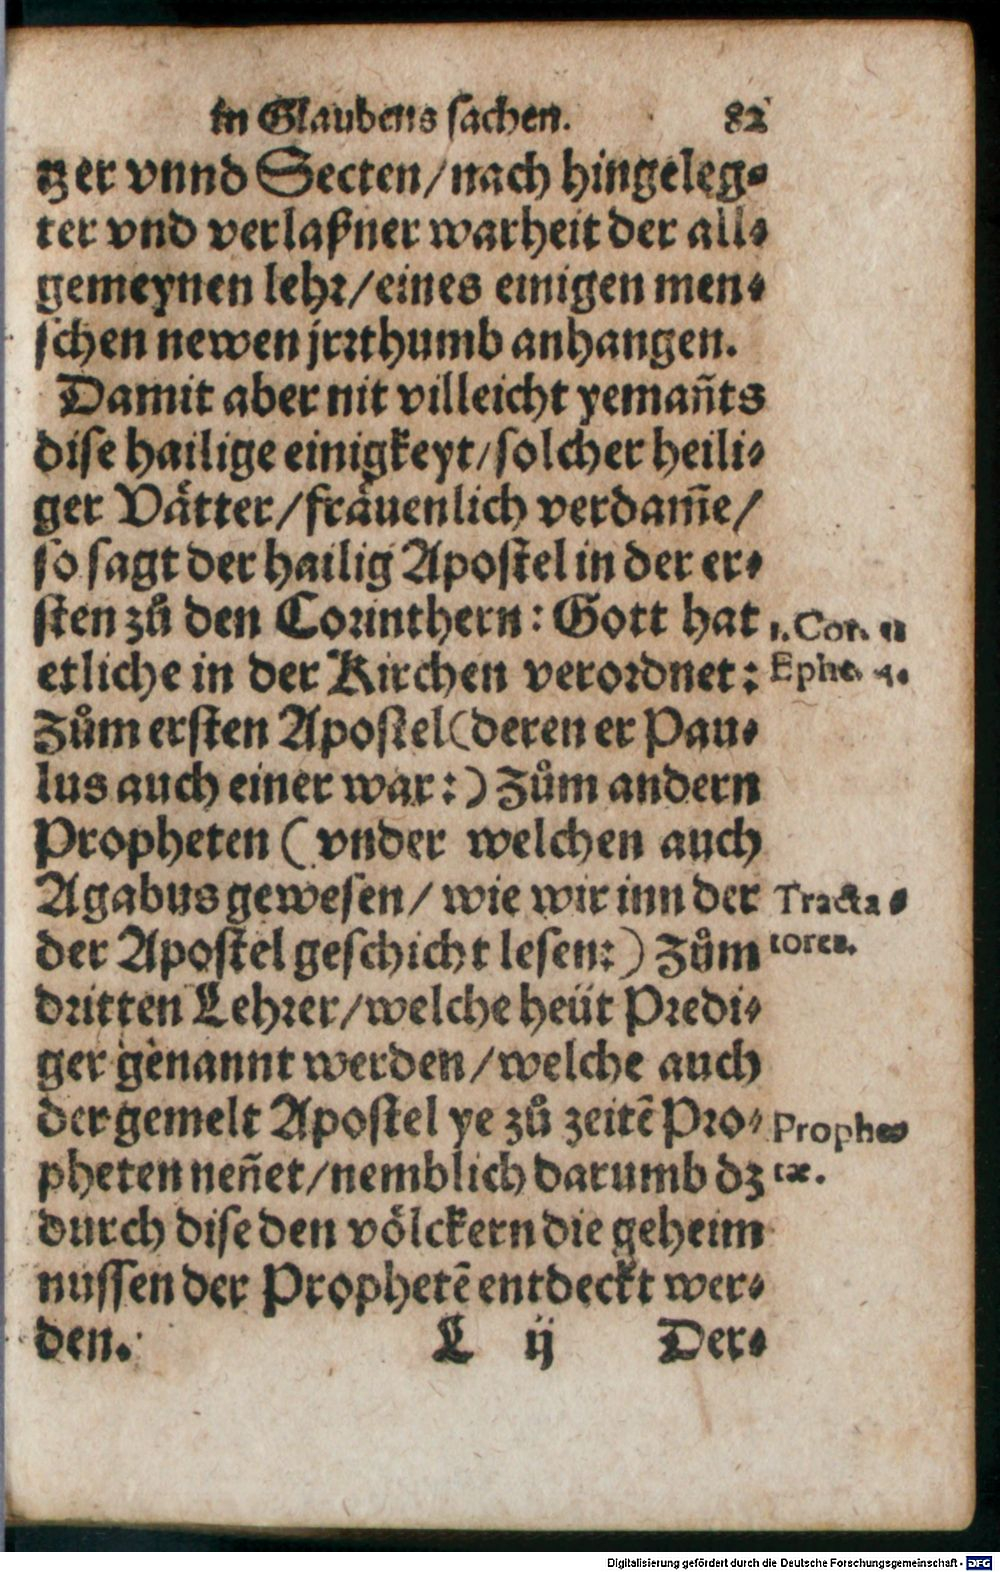 in Glaubens sachen. 82
tzer vnnd Secten/nach hingeleg⸗
ter vnd verlaßner warheit der all⸗
gemeynen lehr/eines einigen men⸗
schen newen jrrthumb anhangen.
Damit aber nit villeicht yemañts
dise hailige einigkeyt/solcher heili⸗
ger Vätter/fräuenlich verdam̃e/
so sagt der hailig Apostel in der er⸗
sten zů den Corinthern: Gott hat
etliche in der Kirchen verordnet:
Zům ersten Apostel(deren er Pau⸗
lus auch einer war:) Zům andern
Propheten (vnder welchen auch
Agabus gewesen/ wie wir inn der
der Apostel geschicht lesen:) Zům
dritten Lehrer/welche heüt Predi⸗
ger genannt werden/welche auch
der gemelt Apostel ye zů zeitē Pro⸗
pheten neñet/nemblich darumb dz
durch dise den völckern die geheim
nussen der Prophetē entdeckt wer⸗
den.
L ij Der⸗
1. Cor.
Ephe. 4.
Tracta⸗
tores.
Prophe⸗
tæ.
Digitalisierung gefördert durch die Deutsche Forschungsgemeinschaft - DFG